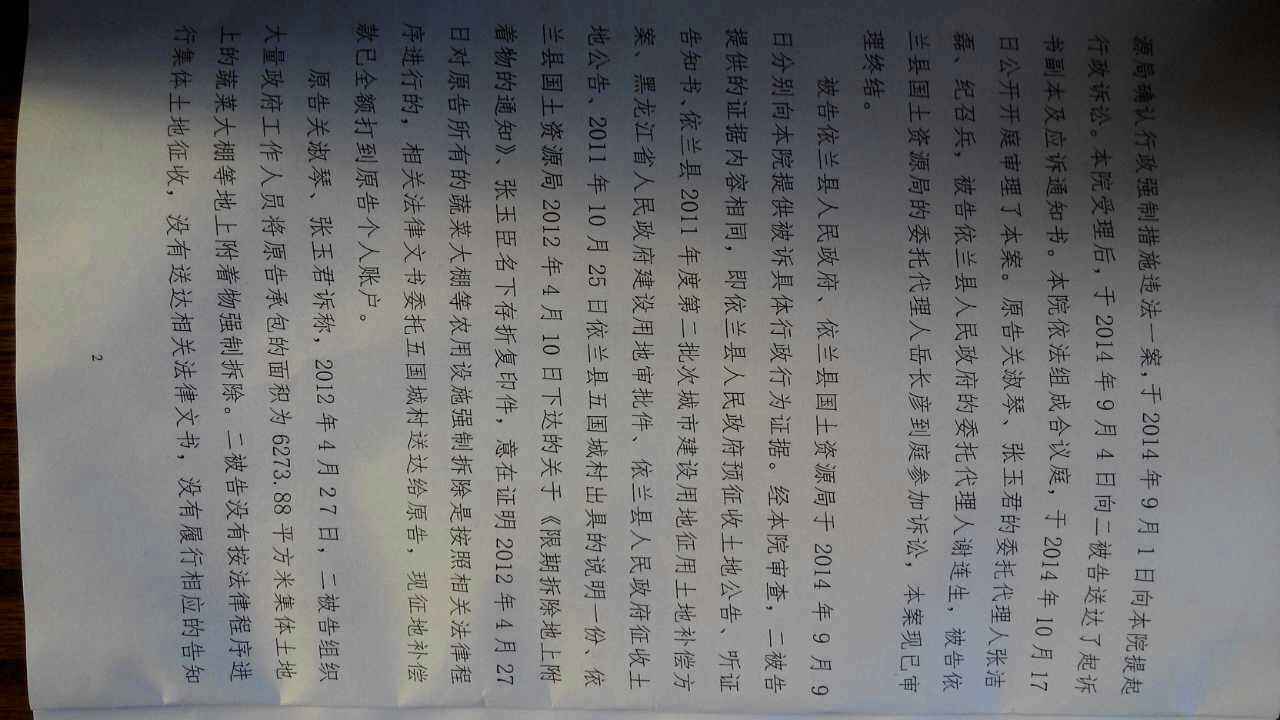 源局确认行政强制措施违法一案，于 2014 年 9 月 1 日向本院提起
行政诉讼。本院受理后，于 2014 年 9 月 4 日向二被告送达了起诉
书副本及应诉通知书。本院依法组成合议庭，于 2014 年 10 月 17
日公开开庭审理了本案。原告关淑琴、张玉君的委托代理人张洁
磊、纪召兵，被告依兰县人民政府的委托代理人谢连生，被告依
兰县国土资源局的委托代理人岳长彦到庭参加诉讼，本案现已审
理终结。
被告依兰县人民政府、依兰县国土资源局于 2014 年 9 月 9
日分别向本院提供被诉具体行政行为证据。经本院审查，二被告
提供的证据内容相同，即依兰县人民政府预征收土地公告、听证
告知书、依兰县 2011 年度第二批次城市建设用地征用土地补偿方
案、黑龙江省人民政府建设用地审批件、依兰县人民政府征收土
地公告、2011 年 10 月 25 日依兰县五国城村出具的说明一份、依
兰县国土资源局 2012 年 4 月 10 日下达的关于《限期拆除地上附
着物的通知》、张玉臣名下存折复印件，意在证明 2012 年 4 月 27
日对原告所有的蔬菜大棚等农用设施强制拆除是按照相关法律程
序进行的，相关法律文书委托五国城村送达给原告，现征地补偿
款已全额打到原告个人账户。
原告关淑琴、张玉君诉称，2012 年 4 月 2 7 日，二被告组织
大量政府工作人员将原告承包的面积为 6273.88 平方米集体土地
上的蔬菜大棚等地上附着物强制拆除。二被告没有按法律程序进
行集体土地征收，没有送达相关法律文书，没有履行相应的告知
2